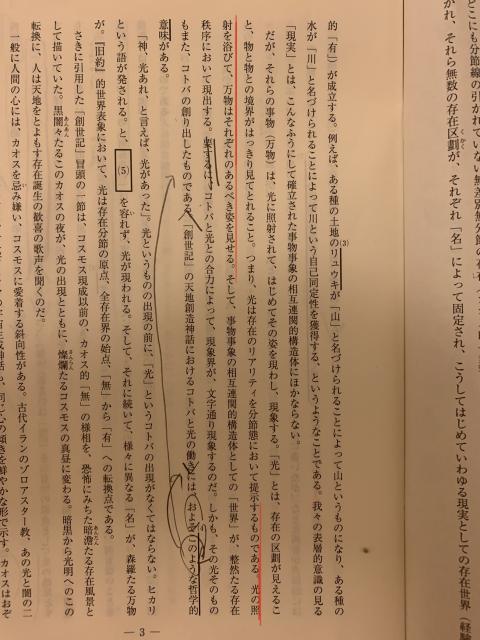 どこにも分節線の引かれていない無差別無分節の
かれ、それら無数の存在区劃が、それぞれ「名」によって固定され、こうしてはじめていわゆる現実としての存在世界(経験
的「有」)が成立する。例えば、ある種の土地のリュウキが「山」と名づけられることによって山というものになり、ある種の
(3)
水が「川」と名づけられることによって川という自己同定性を獲得する、というようなことである。我々の表層的意識の見る
「現実」とは、こんなふうにして確立された事物事象の相互連関的構造体にほかならない。
だが、それらの事物(万物)は、光に照射されて、はじめてその姿を現わし、現象する。「光」とは、存在の区劃が見えるこ
と、物と物との境界がはっきり見てとれること。つまり、光は存在のリアリティを分節態において提示するものである。光の照
射を浴びて、万物はそれぞれのあるべき姿を見せる。そして、事物事象の相互連関的構造体としての「世界」が、整然たる存在
秩序において現出する。要するに、コトバと光との合力によって、現象界が、文字通り現象するのだ。しかも、その光そのもの
もまた、コトバの創り出したものである。「創世記」の天地創造神話におけるコトバと光の働きには、およそこのような哲学的
意味がある。
「神、光あれ、と言えば、光があった」。光というものの出現の前に、「光」というコトバの出現がなくてはならない。ヒカリ
という語が発される。と、(5)を容れず、光が現われる。そして、それに続いて、様々に異なる「名」が、森羅たる万物
が。『旧約』的世界表象において、光は存在分節の原点、全存在界の始点、「無」から「有」への転換点である。
さきに引用した「創世記」冒頭の一節は、コスモス現成以前の、カオス的「無」の様相を、恐怖にみちた暗澹たる存在風景と
して描いていた。黒闇々たるこのカオスの夜が、光の出現とともに、燦爛たるコスモスの真昼に変わる。暗黒から光明へのこの
転換に、人は天地をとよもす存在誕生の歓喜の歌声を聞くのだ。
一般に人間の心には、カオスを忌み嫌い、コスモスに愛着する斜向性がある。古代イランのゾロアスター教、あの光と闇の二
― 3 ―